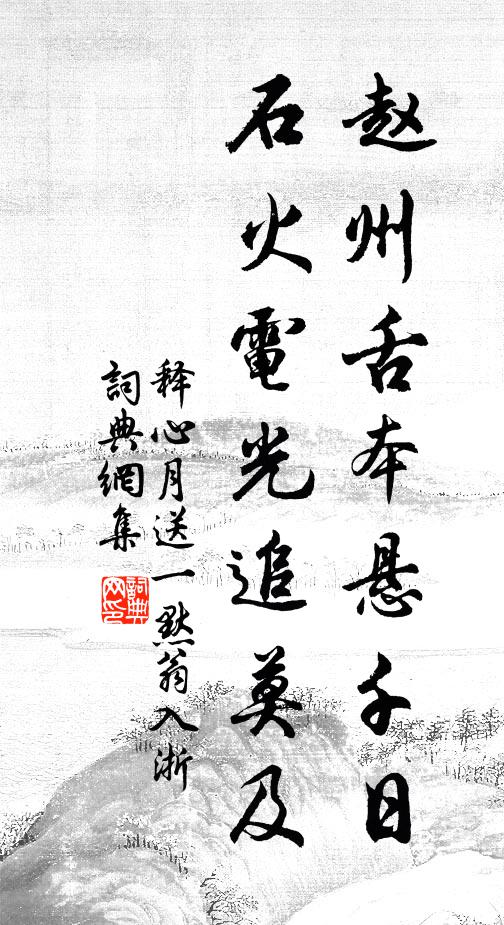 赵州舌本悬千日
石火電光追莫及
释心月送一默翁入浙
詞典網集
詞典网印